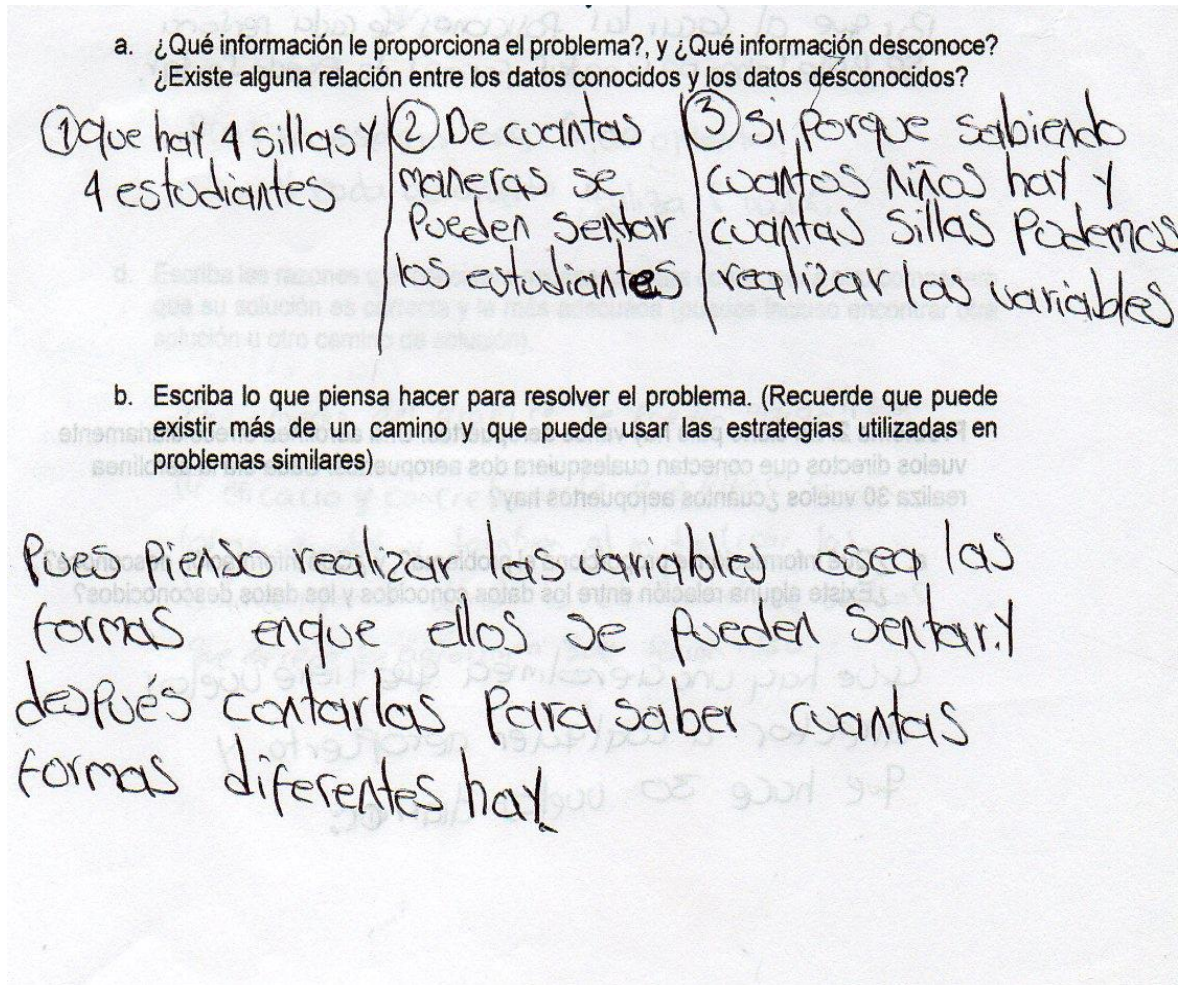 a. ¿Qué información le proporciona el problema?, y ¿Qué información desconoce?
¿Existe alguna relación entre los datos conocidos y los datos desconocidos?
① que hay 4 sillas y
4 estudiantes
② De cuantas
maneras se
pueden sentar
los estudiantes
③ si, porque sabiendo
cuantos niños hay y
cuantas sillas podemos
realizar las variables
b. Escriba lo que piensa hacer para resolver el problema. (Recuerde que puede
existir más de un camino y que puede usar las estrategias utilizadas en
problemas similares)
Pues pienso realizar las variables osea las
formas enque ellos se pueden sentar. y
después contarlas para saber cuantas
formas diferentes hay.